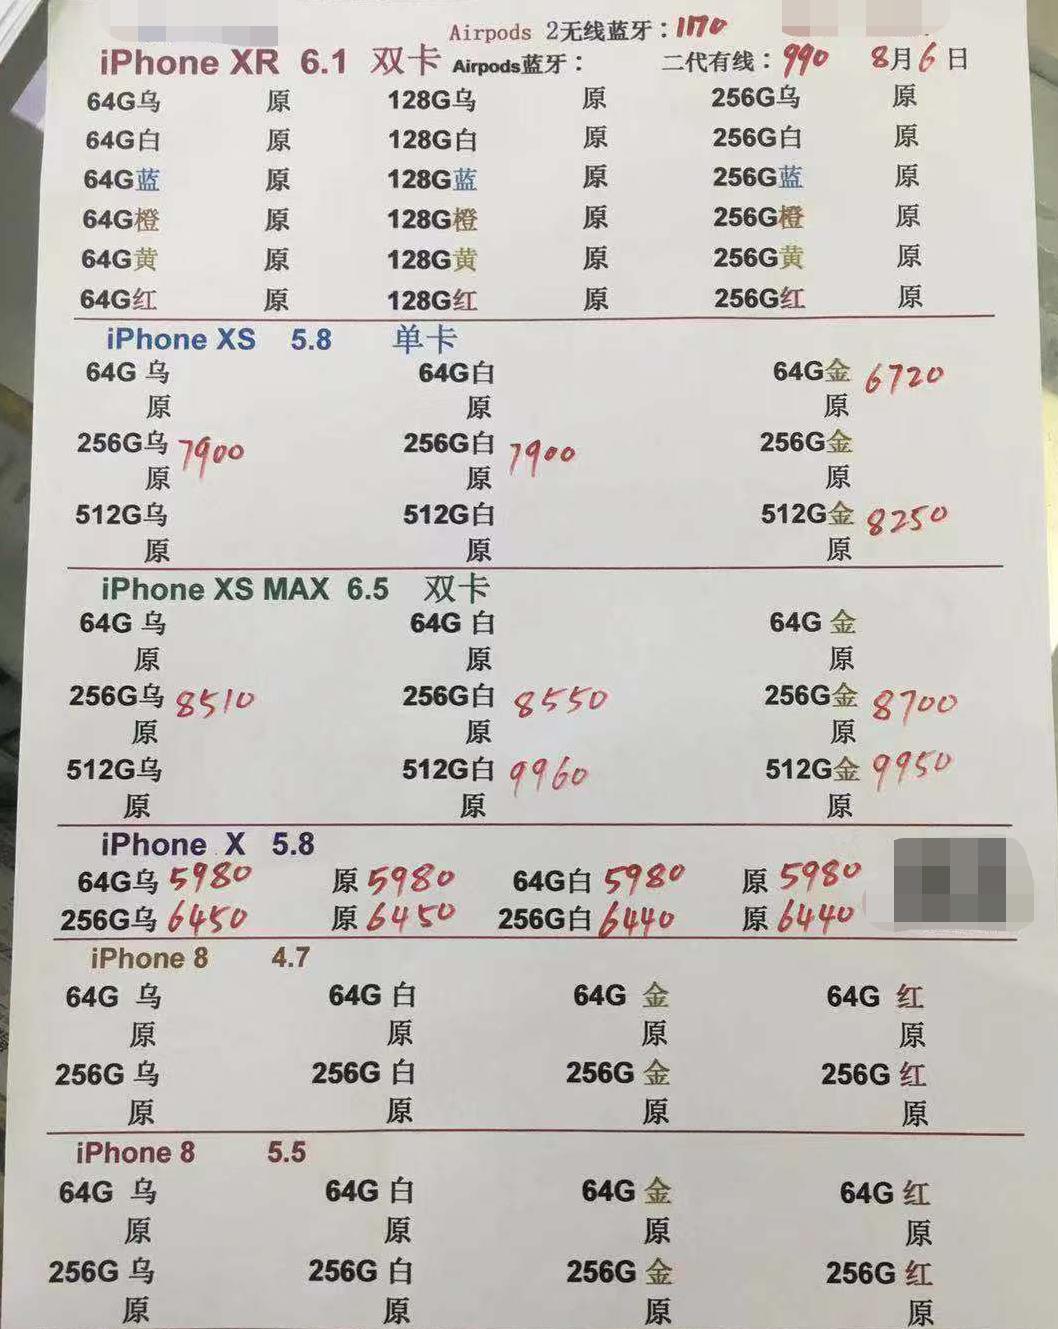 Airpods 2无线蓝牙：1170
iPhone XR 6.1 双卡 Airpods蓝牙： 二代有线：990 8月6日
64G乌 原 128G乌 原 256G乌 原
64G白 原 128G白 原 256G白 原
64G蓝 原 128G蓝 原 256G蓝 原
64G橙 原 128G橙 原 256G橙 原
64G黄 原 128G黄 原 256G黄 原
64G红 原 128G红 原 256G红 原
iPhone XS 5.8 单卡
64G 乌 64G白 64G金 6720
原 原 原
256G乌 7900 256G白 7900 256G金
原 原 原
512G乌 512G白 512G金 8250
原 原 原
iPhone XS MAX 6.5 双卡
64G 乌 64G 白 64G 金
原 原 原
256G乌 8510 256G白 8550 256G金 8700
原 原 原
512G乌 512G白 9960 512G金 9950
原 原 原
iPhone X 5.8
64G乌 5980 原 5980 64G白 5980 原 5980
256G乌 6450 原 6450 256G白 6440 原 6440
iPhone 8 4.7
64G 乌 64G 白 64G 金 64G 红
原 原 原 原
256G 乌 256G 白 256G 金 256G 红
原 原 原 原
iPhone 8 5.5
64G 乌 64G 白 64G 金 64G 红
原 原 原 原
256G 乌 256G 白 256G 金 256G 红
原 原 原 原